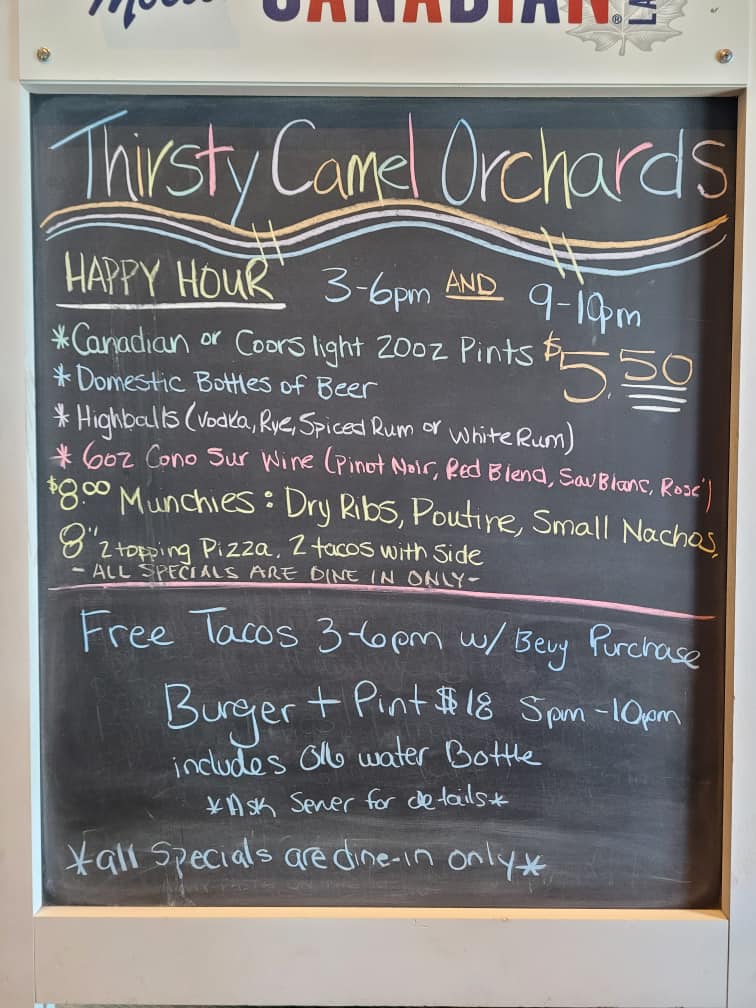 CANADIAN
Thirsty Camel Orchards
HAPPY HOUR 3-6pm AND 9-10pm
*Canadian or Coors light 20oz Pints $5.50
*Domestic Bottles of Beer
*Highballs (Vodka, Rye, Spiced Rum or White Rum)
*6oz Cono Sur Wine (Pinot Noir, Red Blend, Sav Blanc, Rosé)
$8.00 Munchies: Dry Ribs, Poutine, Small Nachos,
8" 2 topping Pizza, 2 tacos with Side
- ALL SPECIALS ARE DINE IN ONLY -
Free Tacos 3-6pm w/ Bevy Purchase
Burger + Pint $18 5pm-10pm
includes water Bottle
*Ask Server for details*
*all Specials are dine-in only*